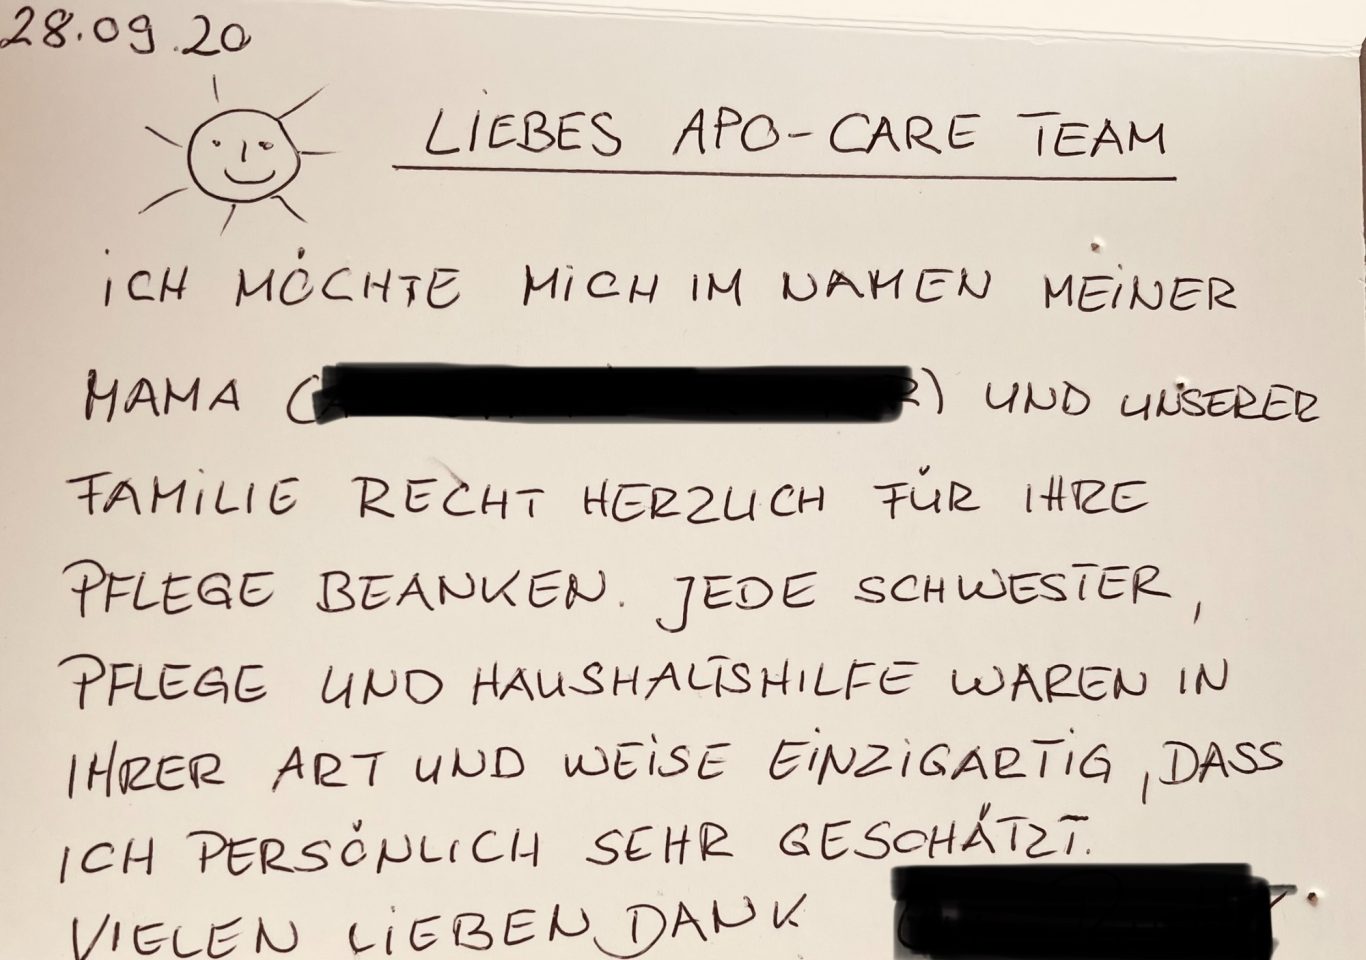 28.09.20
LIEBES APO-CARE TEAM
ICH MÖCHTE MICH IM NAMEN MEINER
MAMA ( ) UND UNSERER
FAMILIE RECHT HERZLICH FÜR IHRE
PFLEGE BEANKEN. JEDE SCHWESTER,
PFLEGE UND HAUSHALTSHILFE WAREN IN
IHRER ART UND WEISE EINZIGARTIG, DASS
ICH PERSÖNLICH SEHR GESCHÄTZT.
VIELEN LIEBEN DANK